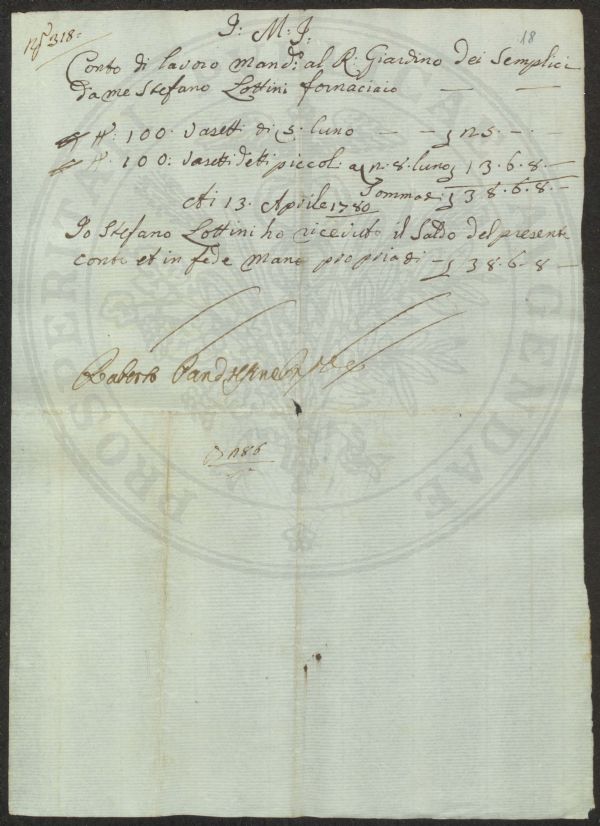 N.º 318: 18
J: M: J:
Conto di lavoro mand.º al R: Giardino dei Semplici
da me Stefano Lottini fornaciaio
N: 100: Vasetti di 5: luno
N: 100: Vasetti detti piccol: a 8 luno 13.6.8
Somma 38.6.8
Ai 13. Aprile 1780
Io Stefano Lottini ho ricevuto il Saldo del presente
conto et in fede mano propria di 38.6.8
Roberto
PROSPERITATI AGENDAE